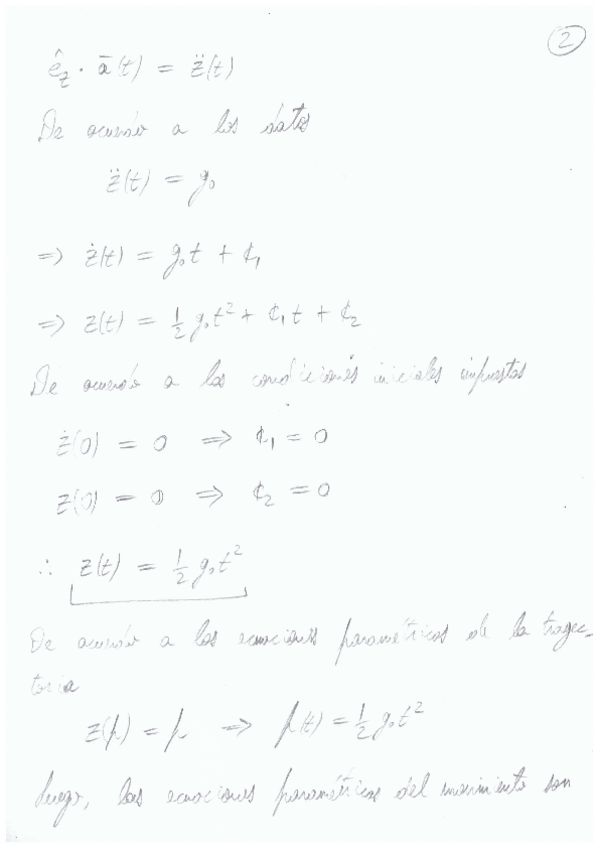 2
ê_z · ā(t) = z̈(t)
De acuerdo a los datos
z̈(t) = g₀
=> ż(t) = g₀t + ¢₁
=> z(t) = 1/2 g₀t² + ¢₁t + ¢₂
De acuerdo a las condiciones iniciales impuestas
ż(0) = 0 => ¢₁ = 0
z(0) = 0 => ¢₂ = 0
∴ z(t) = 1/2 g₀t²
De acuerdo a las ecuaciones paramétricas de la trayec-
toria
z(p) = p => p(t) = 1/2 g₀t²
Luego, las ecuaciones paramétricas del movimiento son